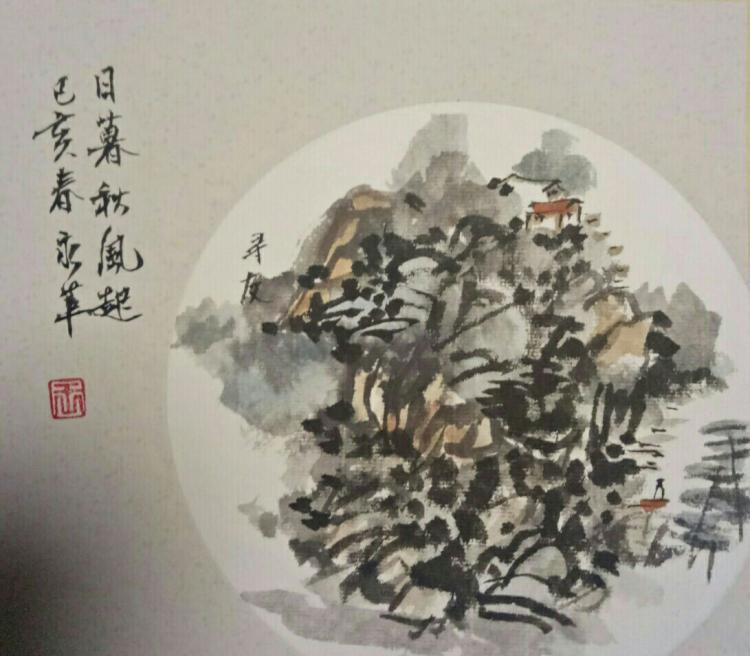 日暮秋風起
己亥春永華
寻友